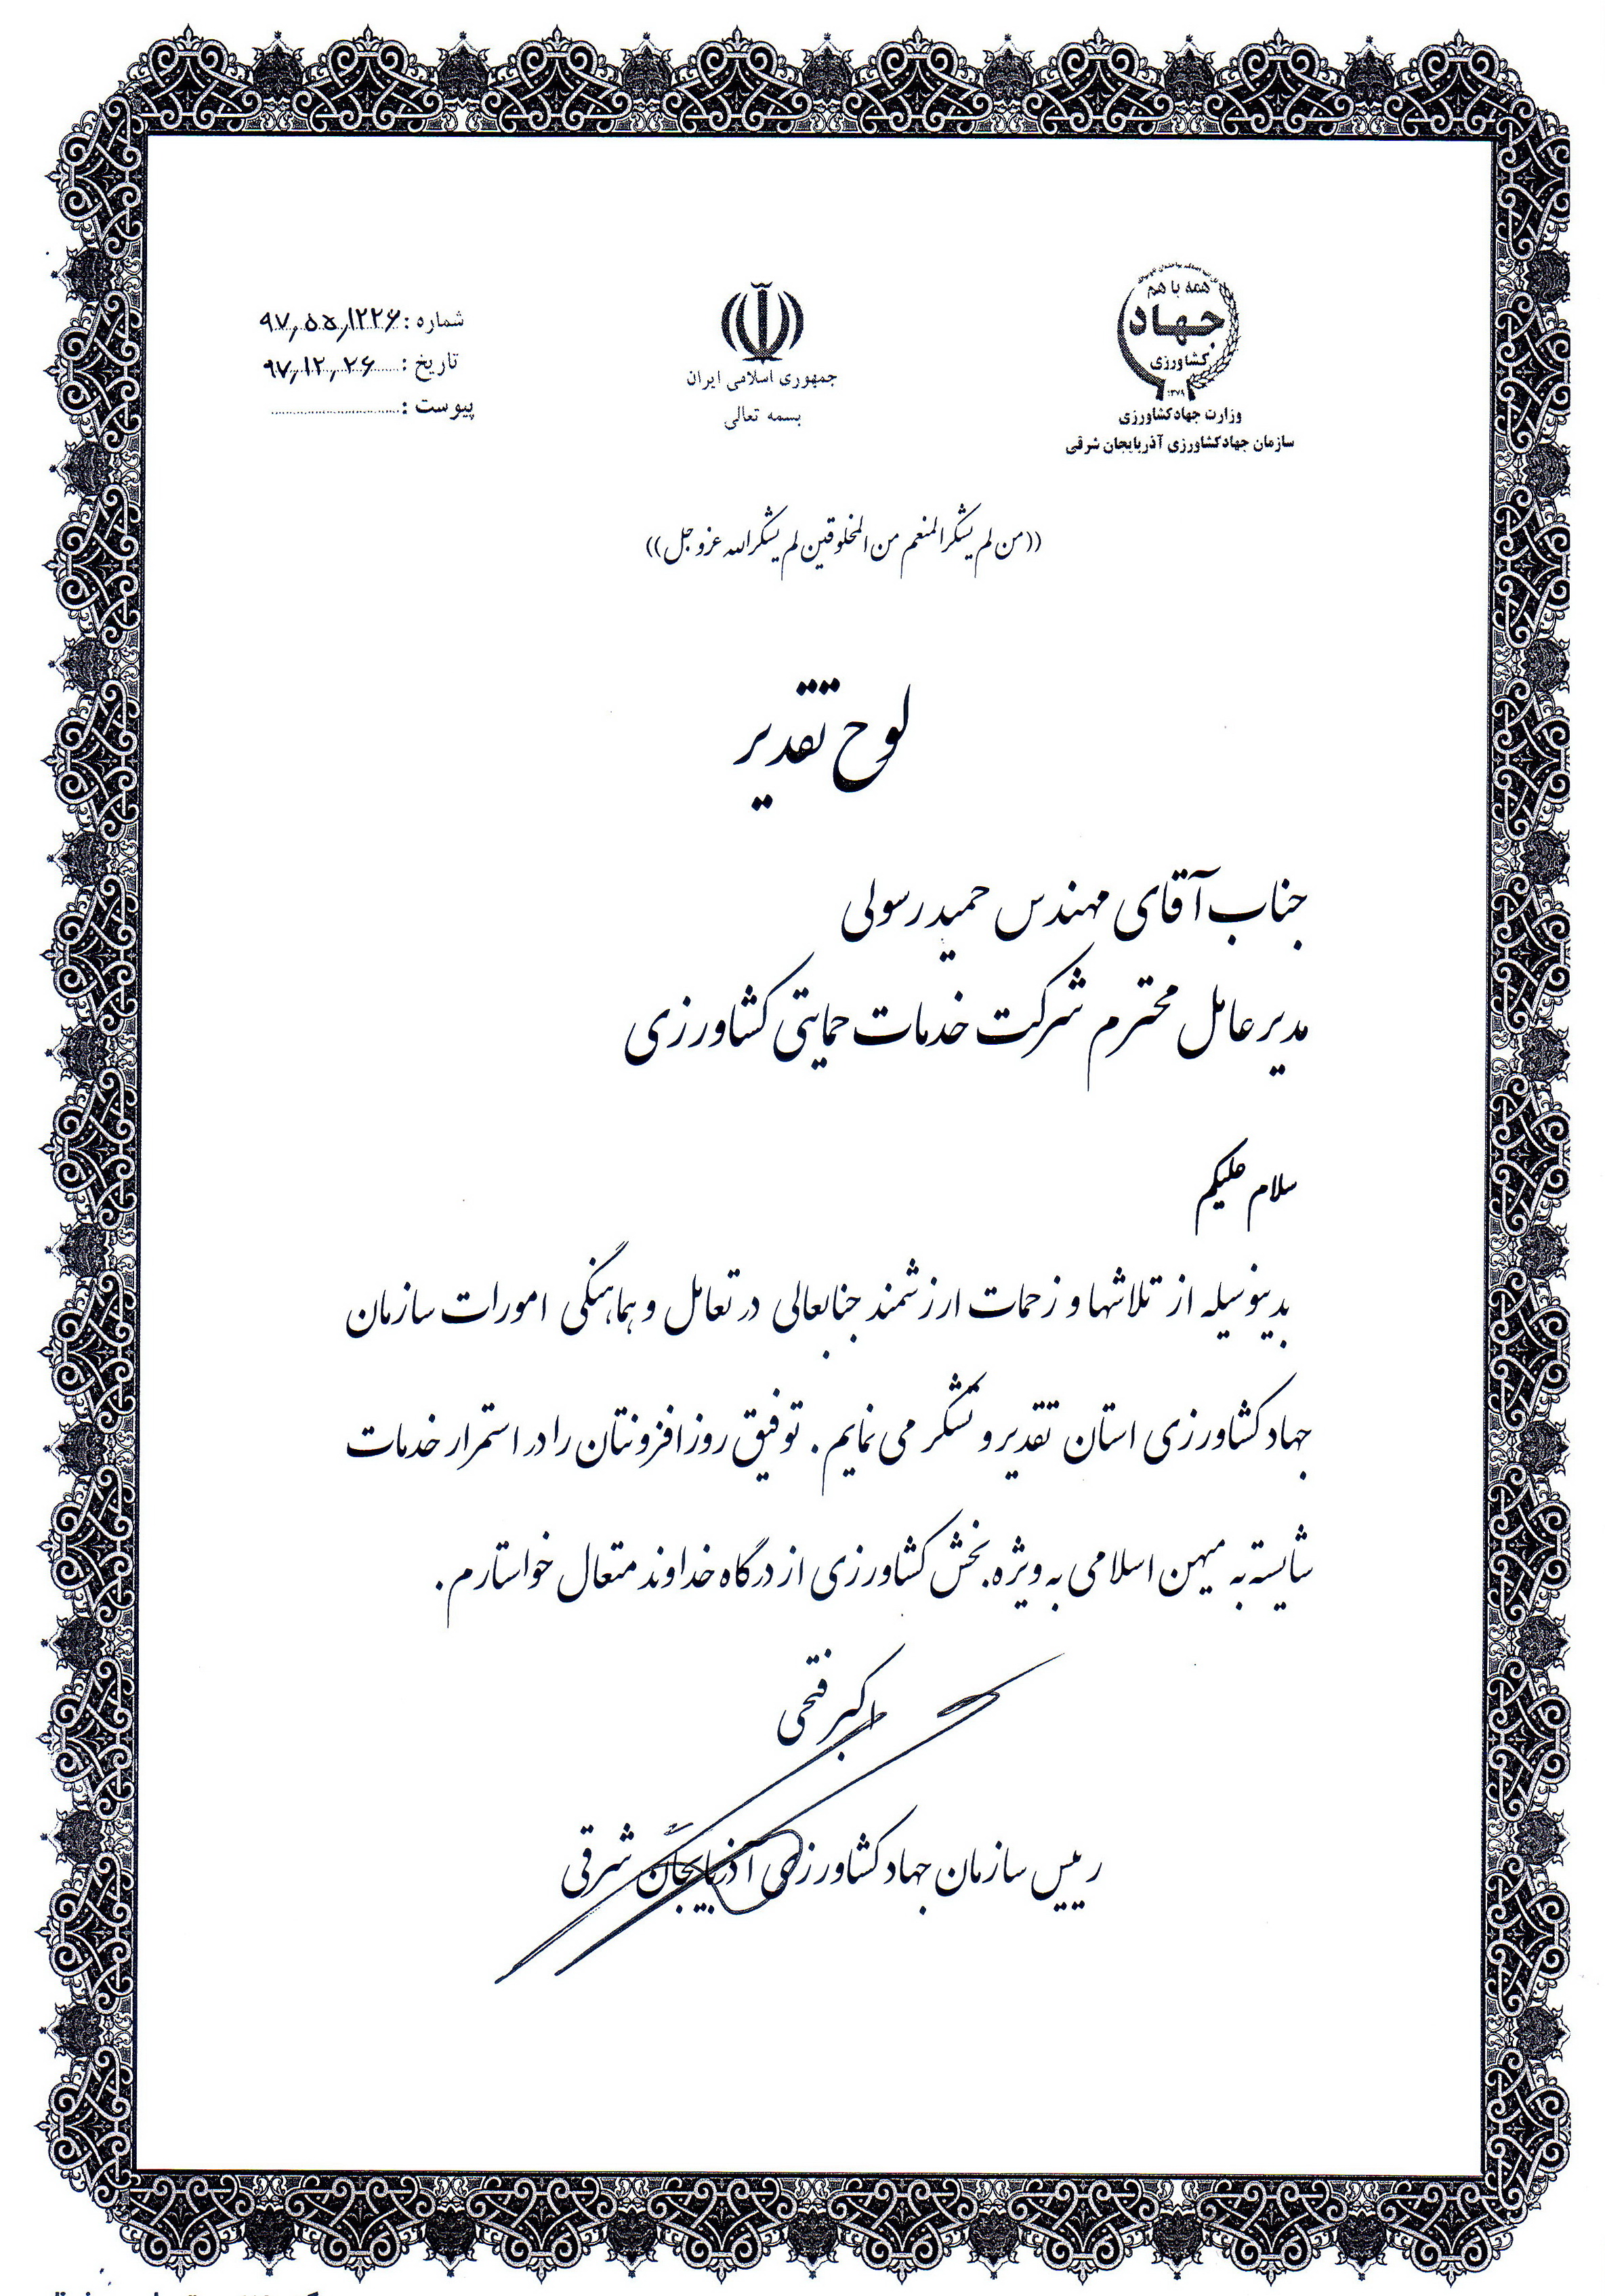 همه با هم
جهاد
کشاورزی
۱۳۷۹
وزارت جهاد کشاورزی
سازمان جهاد کشاورزی آذربایجان شرقی
جمهوری اسلامی ایران
بسمه تعالی
شماره : ۹۷٫۵۵٫۱۲۲۶
تاریخ : ۹۷٫۱۲٫۲۶
پیوست :
((من لم یشکر المنعم من المخلوقین لم یشکر الله عز و جل))
لوح تقدیر
جناب آقای مهندس حمید رسولی
مدیر عامل محترم شرکت خدمات حمایتی کشاورزی
سلام علیکم
بدینوسیله از تلاشها و زحمات ارزشمند جنابعالی در تعامل و هماهنگی امورات سازمان
جهاد کشاورزی استان تقدیر و تشکر می نمایم. توفیق روز افزونتان را در استمرار خدمات
شایسته به میهن اسلامی به ویژه بخش کشاورزی از درگاه خداوند متعال خواستارم.
اکبر فتحی
رییس سازمان جهاد کشاورزی آذربایجان شرقی